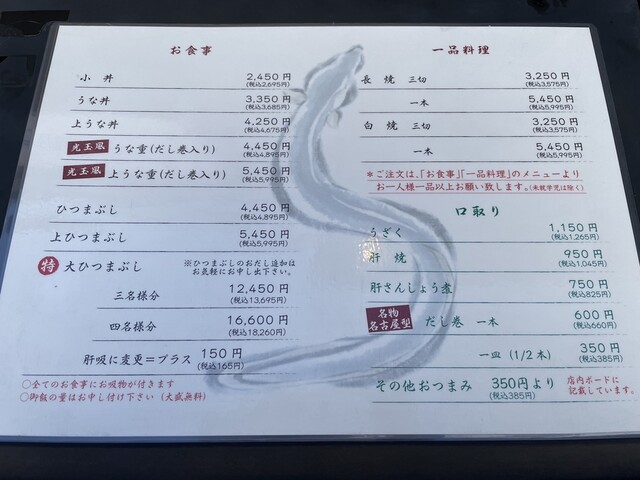 お食事
小丼 2,450円
(税込2,695円)
うな丼 3,350円
(税込3,685円)
上うな丼 4,250円
(税込4,675円)
光玉風 うな重(だし巻入り) 4,450円
(税込4,895円)
光玉風 上うな重(だし巻入り) 5,450円
(税込5,995円)
ひつまぶし 4,450円
(税込4,895円)
上ひつまぶし 5,450円
(税込5,995円)
特 大ひつまぶし ※ひつまぶしのおだし追加は
お気軽にお申し出下さい。
三名様分 12,450円
(税込13,695円)
四名様分 16,600円
(税込18,260円)
肝吸に変更=プラス 150円
(税込165円)
○全てのお食事にお吸物が付きます
○御飯の量はお申し付け下さい(大盛無料)
一品料理
長焼 三切 3,250円
(税込3,575円)
一本 5,450円
(税込5,995円)
白焼 三切 3,250円
(税込3,575円)
一本 5,450円
(税込5,995円)
*ご注文は、「お食事」「一品料理」のメニューより
お一人様一品以上お願い致します。(未就学児は除く)
口取り
うざく 1,150円
(税込1,265円)
肝焼 950円
(税込1,045円)
肝さんしょう煮 750円
(税込825円)
名物
名古屋型 だし巻 一本 600円
(税込660円)
一皿(1/2本) 350円
(税込385円)
その他おつまみ 350円より
(税込385円)
店内ボードに
記載しています。